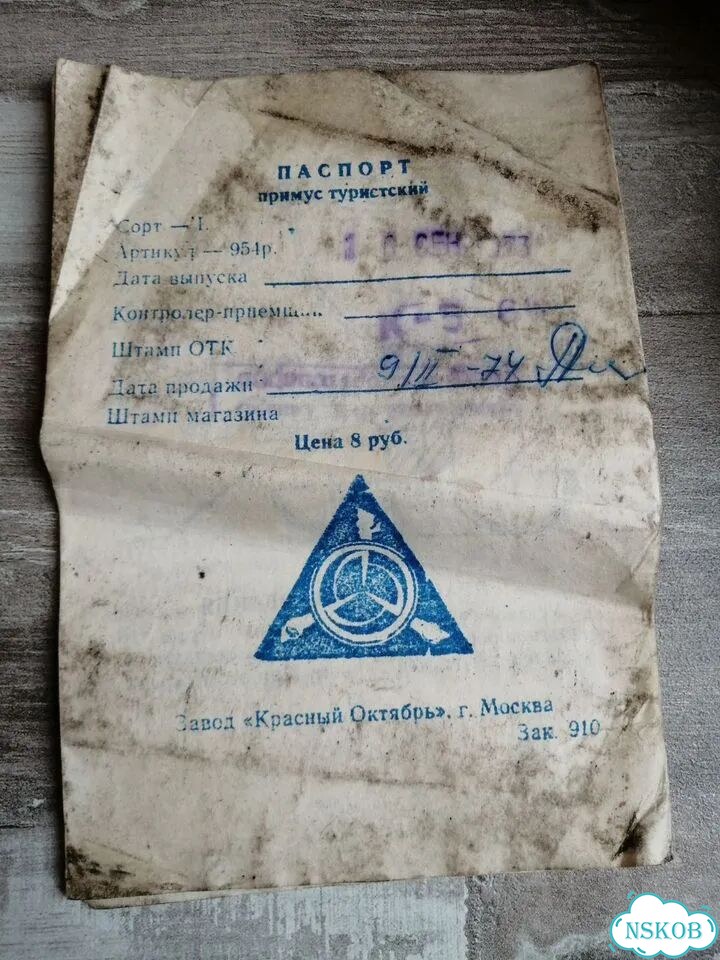 ПАСПОРТ
примус туристский
Сорт — 1.
Артикул — 954р.
Дата выпуска
Контролер-приемщик
Штамп ОТК
9/II -74
Дата продажи
Штамп магазина
Цена 8 руб.
Завод «Красный Октябрь», г. Москва
Зак. 910
NSKOB